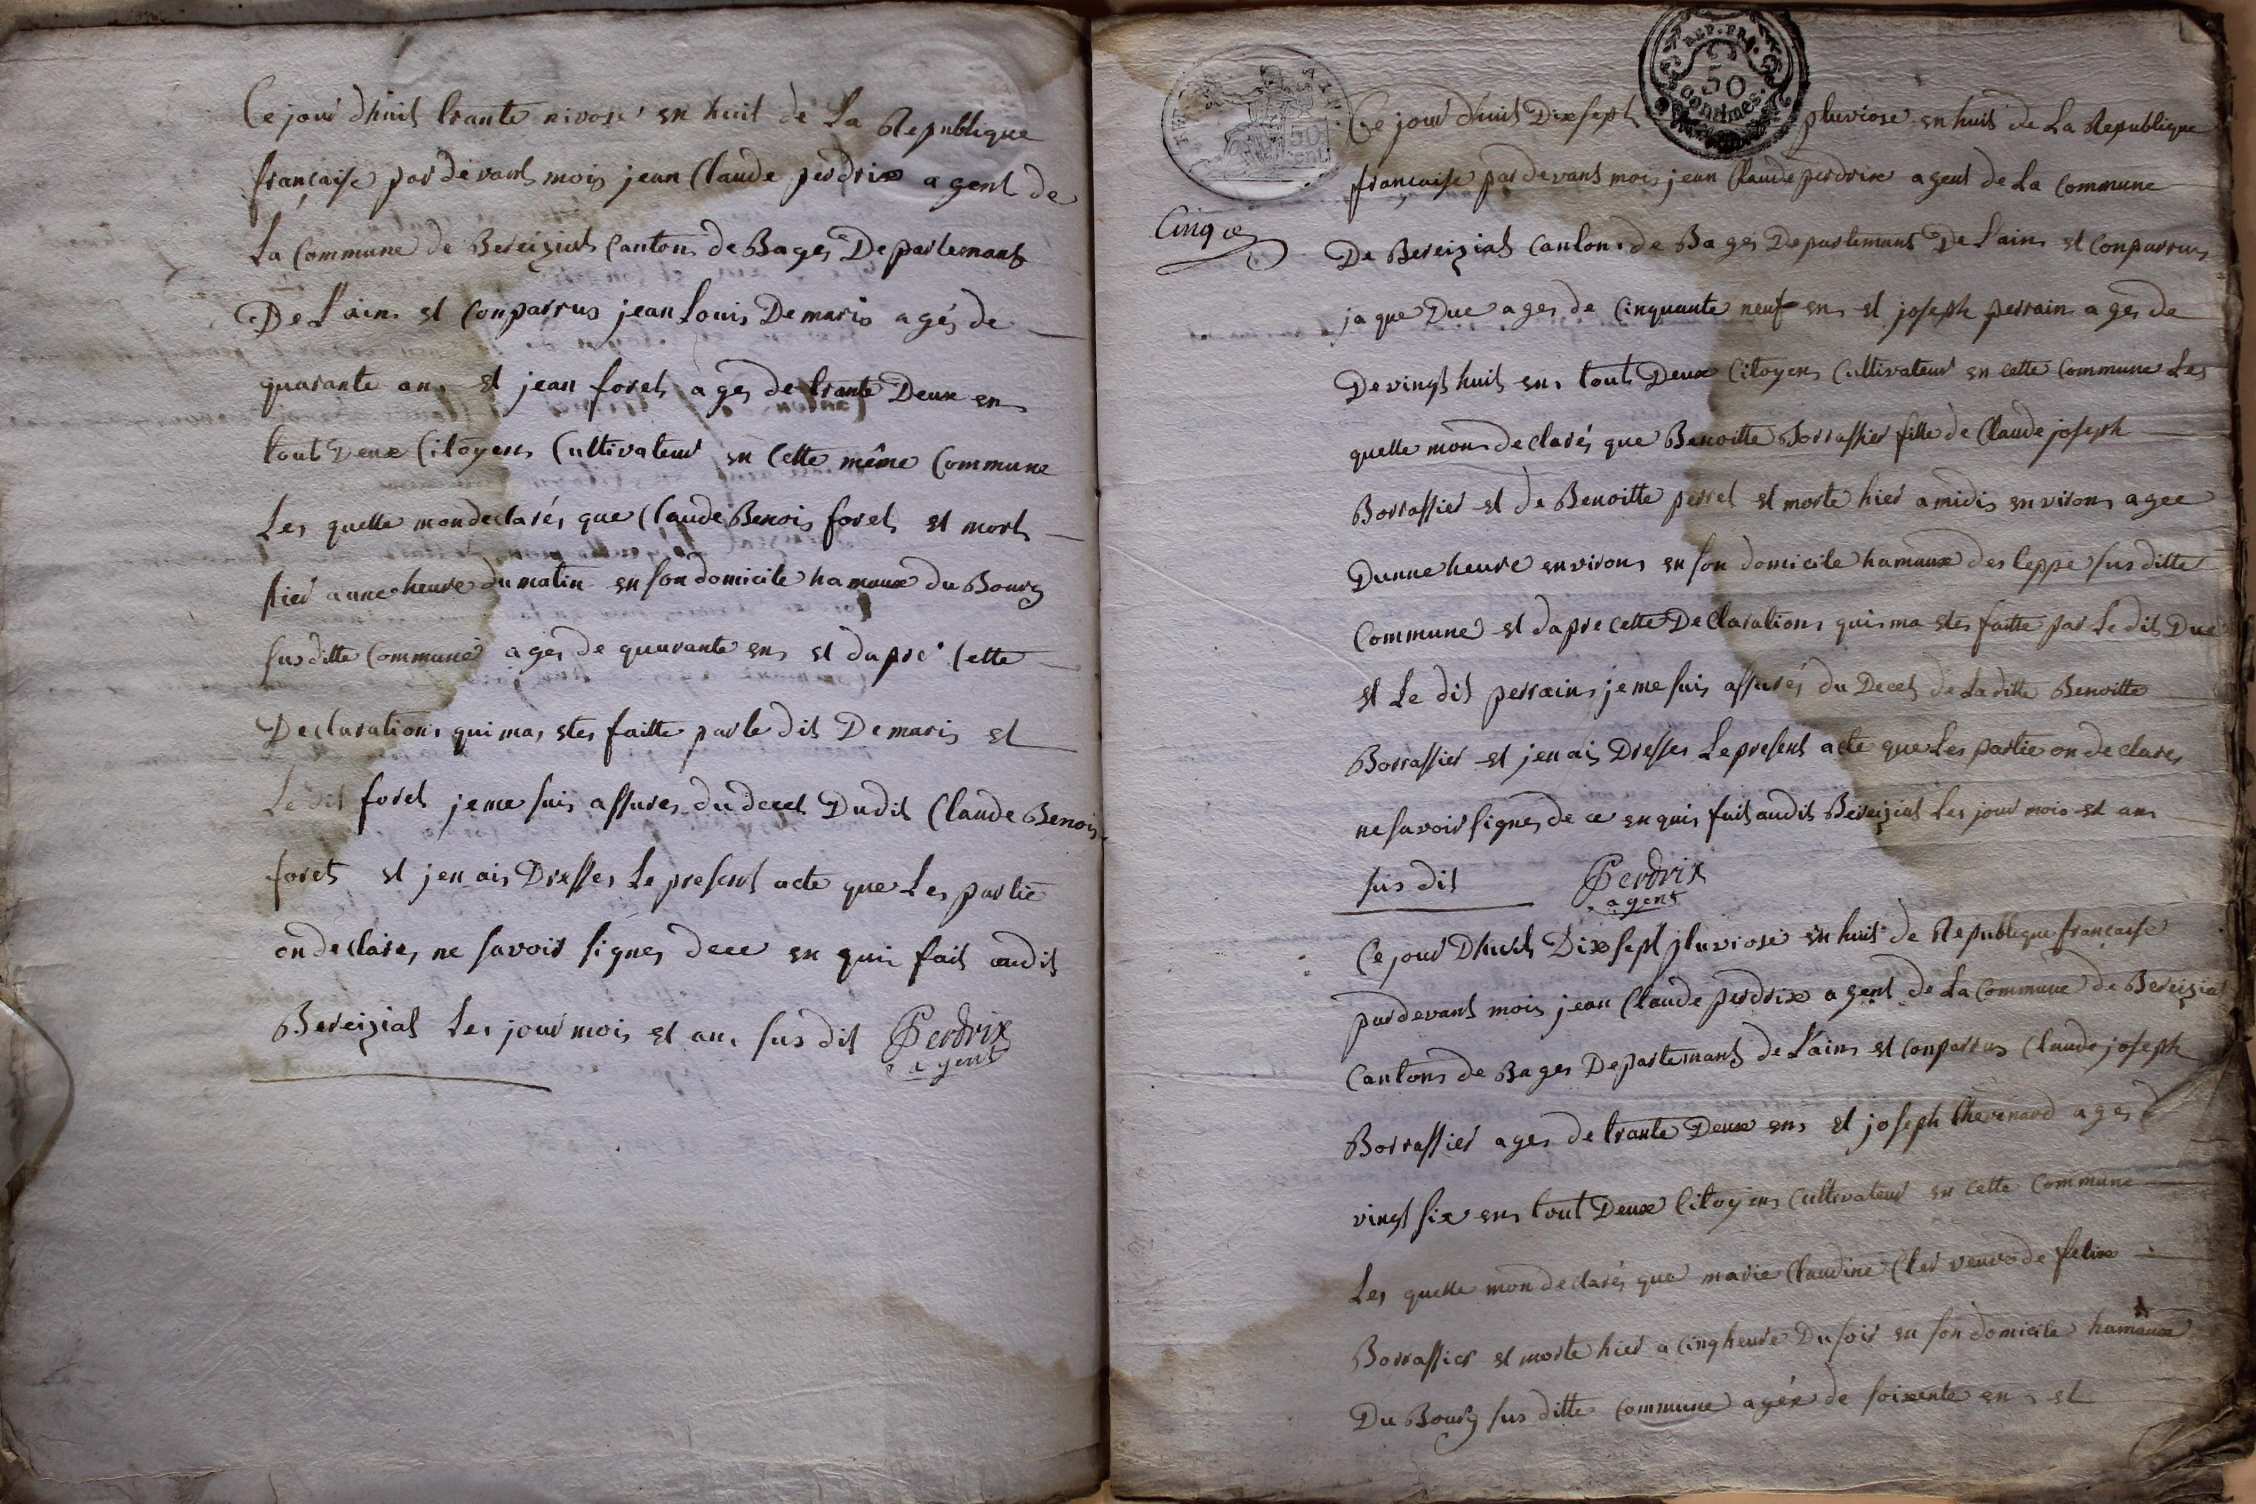 Ce jour dhuit trante nivose en huit de La Republique
française par devant mois jean Claude perdrix agent de
La Commune de Bereiziat Canton de Bages Departemant
De Lain et Conparrus jean Louis Demaris agés de
quarante ans et jean foret ages de trante Deux en
tout Deux Citoyens Cultivateur en Cette même Commune
Les quelle mon declarés que Claude Benois foret et mort
hier a une heure du matin en son domicile hamaux du Bourg
sus ditte Commune ages de quarante ens et dapre Cette
Declarations qui mas etes faitte par le dit Demaris et
Le dit foret je me suis assures du decet Dudit Claude Benois
foret et jen ais Dresses Le present acte que Les partie
on declares ne savoir signes de ce en quis fait audit
Bereiziat Les jour mois et an sus dit Perdrix
agent
REP. FRA.
50
centimes
50
cent
Cinq
Ce jour dhuit Dix sept pluviose en huit de La Republique
française par devant mois jean Claude perdrix agent de La Commune
De Bereiziat Canton de Bages Departemant De Lain et Conparrus
jaque Duc ages de Cinquante neuf ens et joseph perrain ages de
De vingt huit ens tout Deux Citoyens Cultivateur en cette Commune Les
quelle mon declarés que Benoitte Borrassier fille de Claude joseph
Borrassier et de Benoitte perret et morte hier a midis environs agee
Dunne heure environs en son domicile hamaux des leppe sus ditte
Commune et dapre cette Declarations quis ma etes faitte par Le dit Duc
et Le dit perrain je me suis assurés du Decet de La ditte Benoitte
Borrassier et jen ais Dresses Le present acte que Les partie on declares
ne savoir signes de ce en quis fait audit Bereiziat Les jour mois et ans
sus dit Perdrix
agent
Ce jour Dhuit Dix sept pluviose en huit de Republique française
par devant mois jean Claude perdrix agent de La Commune de Bereiziat
Cantons de Bages Departemant de Lain et Conparrus Claude joseph
Borrassier ages de trante Deux ens et joseph thevenard ages d
vingt six ens tout Deux Citoyens Cultivateur en cette Commune
Les quelle mon declarés que marie Claudine Cler veuve de felix
Borrassier et morte hier a cinq heure Du soir en son domicile hamaux
Du Bourg sus ditte Commune agée de soixente ens et